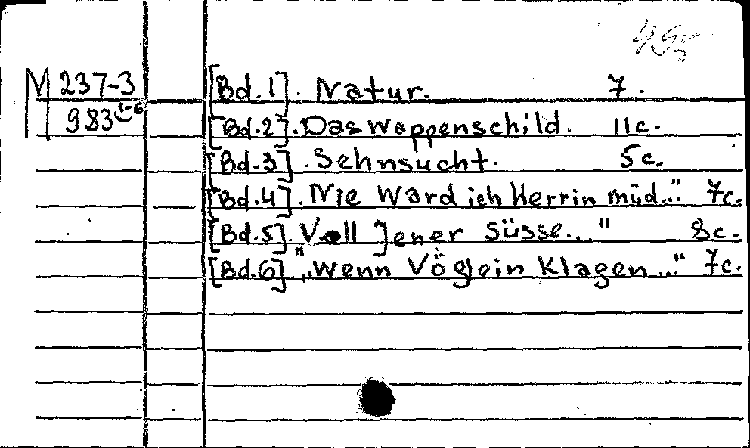 M 237-3 [Bd.1]. Natur. 7.
983 1-6 [Bd.2]. Das Wappenschild. 11c.
[Bd.3]. Sehnsucht. 5c.
[Bd.4]. Nie Ward ich Herrin müd..." 7c.
[Bd.5] Voll Jener Süsse..." 8c.
[Bd.6] „Wenn Vöglein Klagen..." 7c.